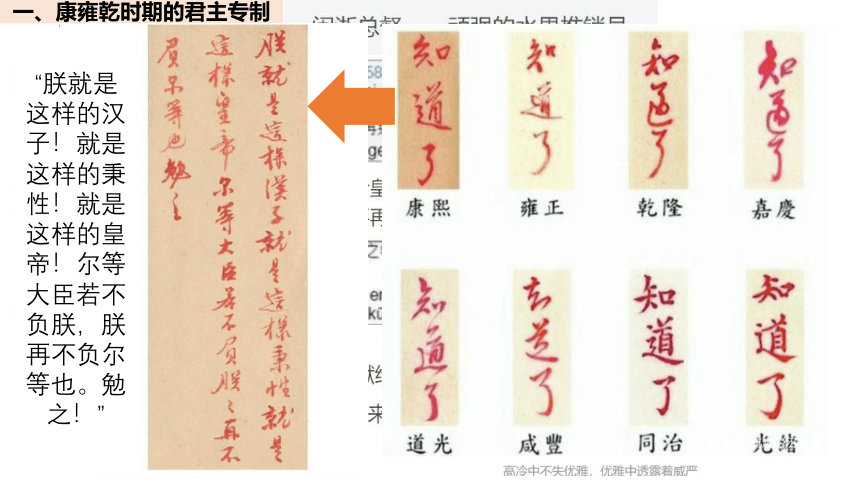 一、康雍乾时期的君主专制
闽浙总督
顽强的水果推销员
“朕就是
这样的汉
子！就是
这样的秉
性！就是
这样的皇
帝！尔等
大臣若不
负朕，朕
再不负尔
等也。勉
之！”
朕就是這樣漢子就是這樣秉性就是
這樣皇帝尔等大臣若不負朕朕再不
負尔等也勉之
知道了
康熙
知道了
雍正
知道了
乾隆
知道了
嘉慶
知道了
道光
知道了
咸豐
知道了
同治
知道了
光緒
高冷中不失优雅，优雅中透露着威严